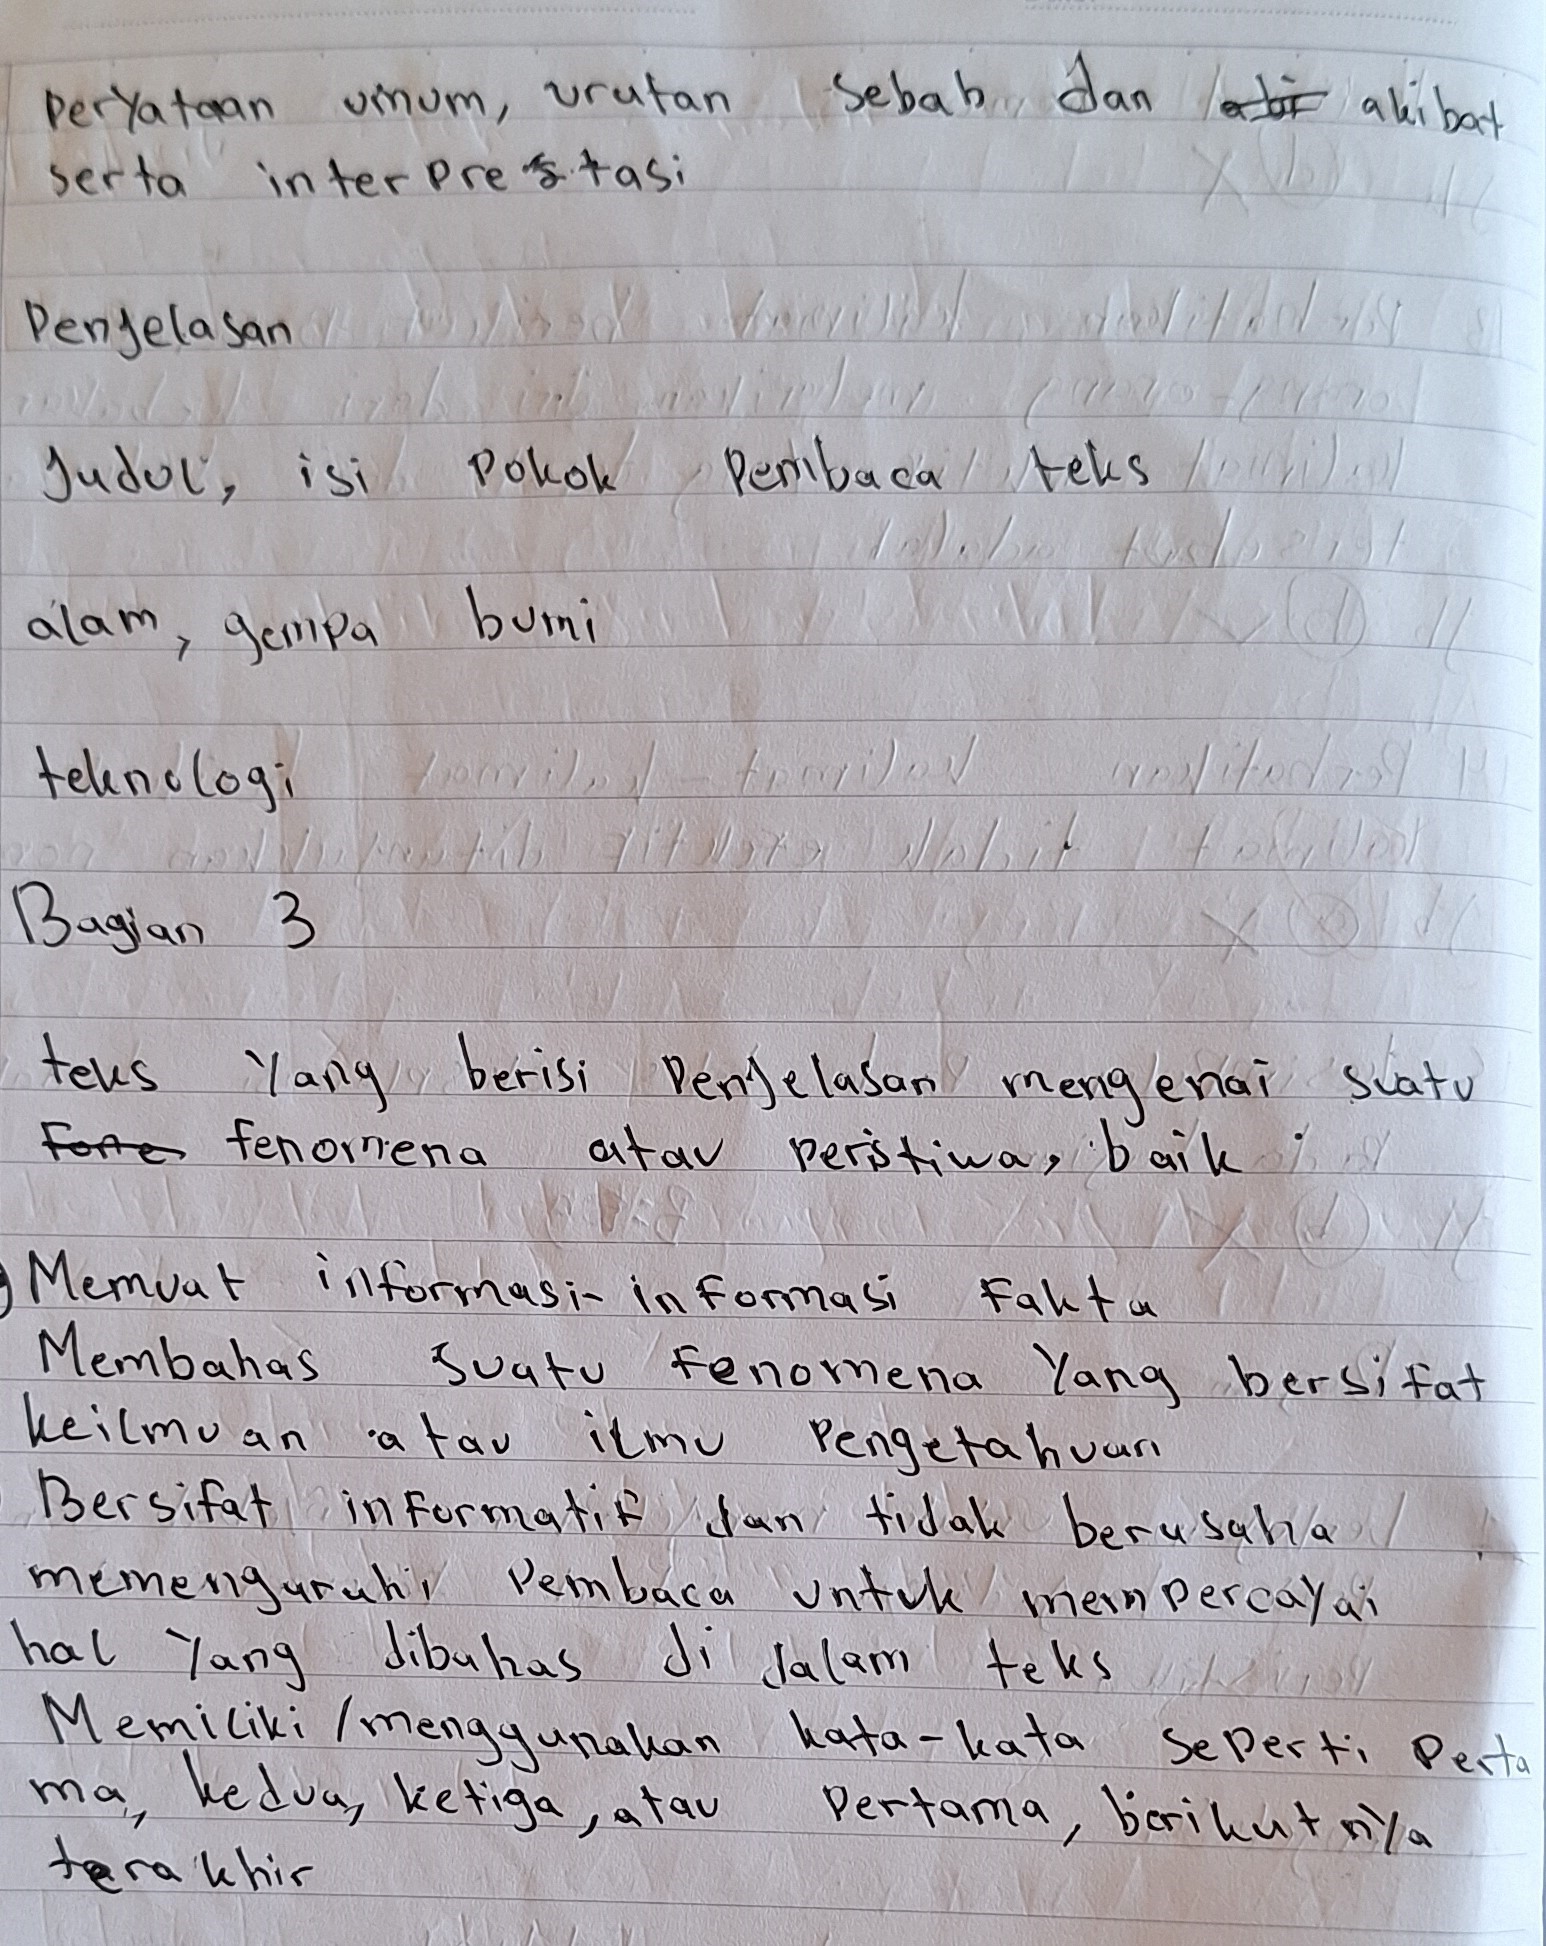 peryataan umum, urutan sebab dan akibat
serta interprestasi
Penjelasan
Judul, isi pokok pembaca teks
alam, gempa bumi
teknologi
Bagian 3
teks yang berisi penjelasan mengenai suatu
fenomena atau peristiwa, baik
Memuat informasi-informasi fakta
Membahas suatu fenomena yang bersifat
keilmuan atau ilmu pengetahuan
Bersifat informatif dan tidak berusaha
memengaruhi pembaca untuk mempercayai
hal yang dibahas di dalam teks
Memiliki/menggunakan kata-kata seperti perta
ma, kedua, ketiga, atau pertama, berikutnya
terakhir